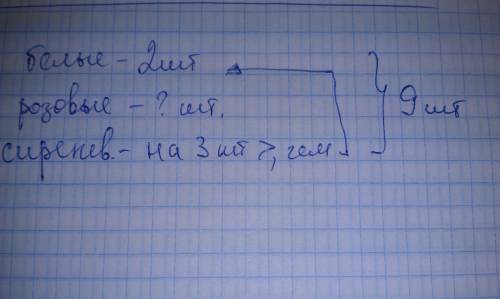 белые - 2шт
розовые - ? шт.
сиренев. - на 3 шт >, чем
9 шт